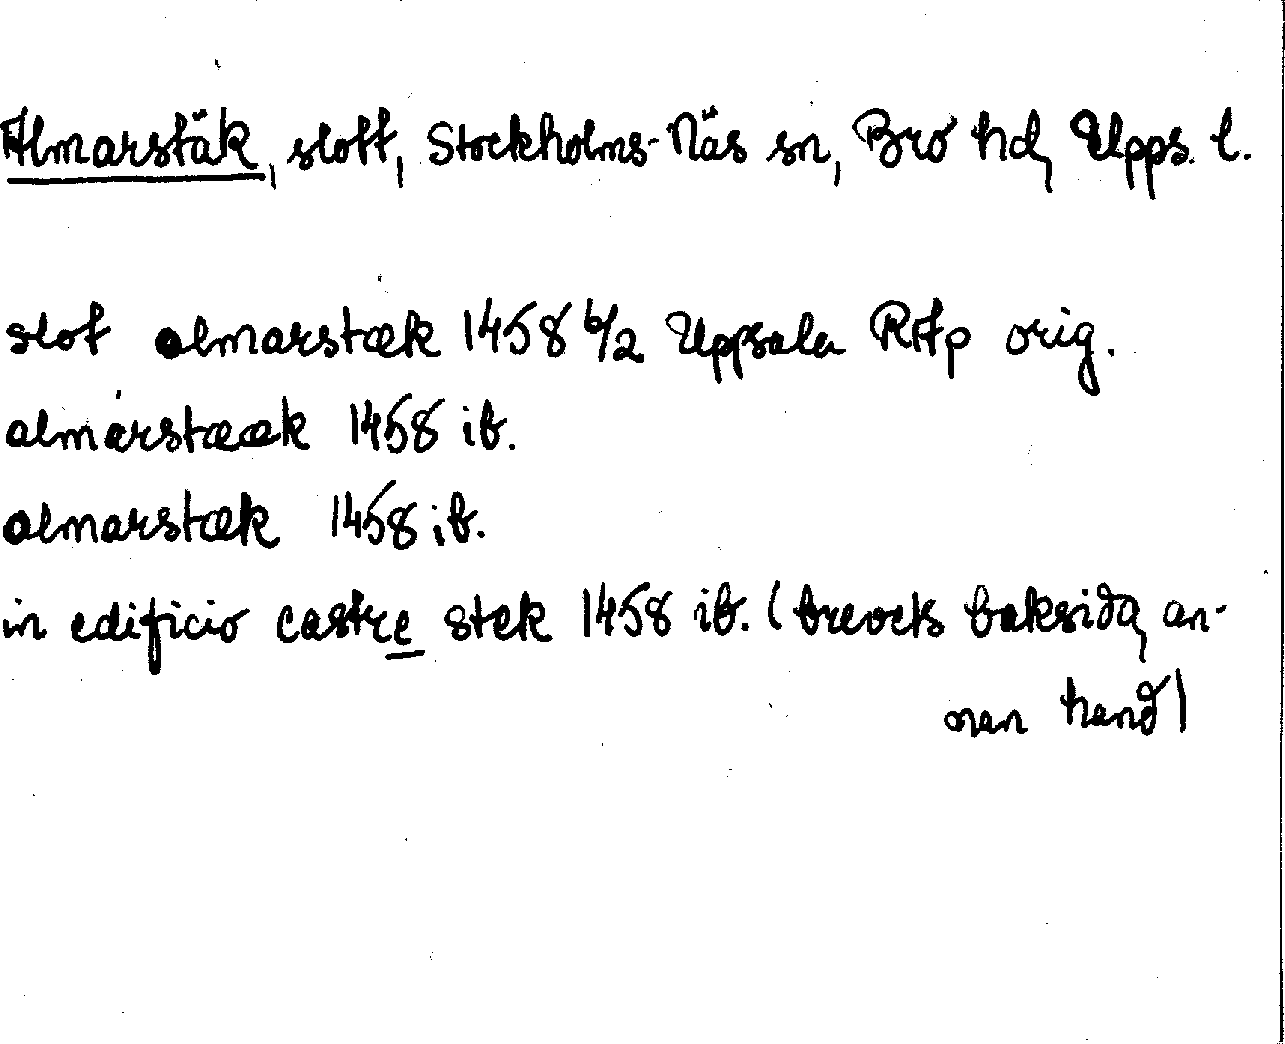 Almarstäk, slott, Stockholms-Näs sn, Bro hd, Upps. l.
slot almarstæk 1458 6/2 Uppsala RAp orig.
almarstææk 1458 ib.
almarstæk 1458 ib.
in edificio castre stek 1458 ib. (brevets baksida, an-
nan hand)